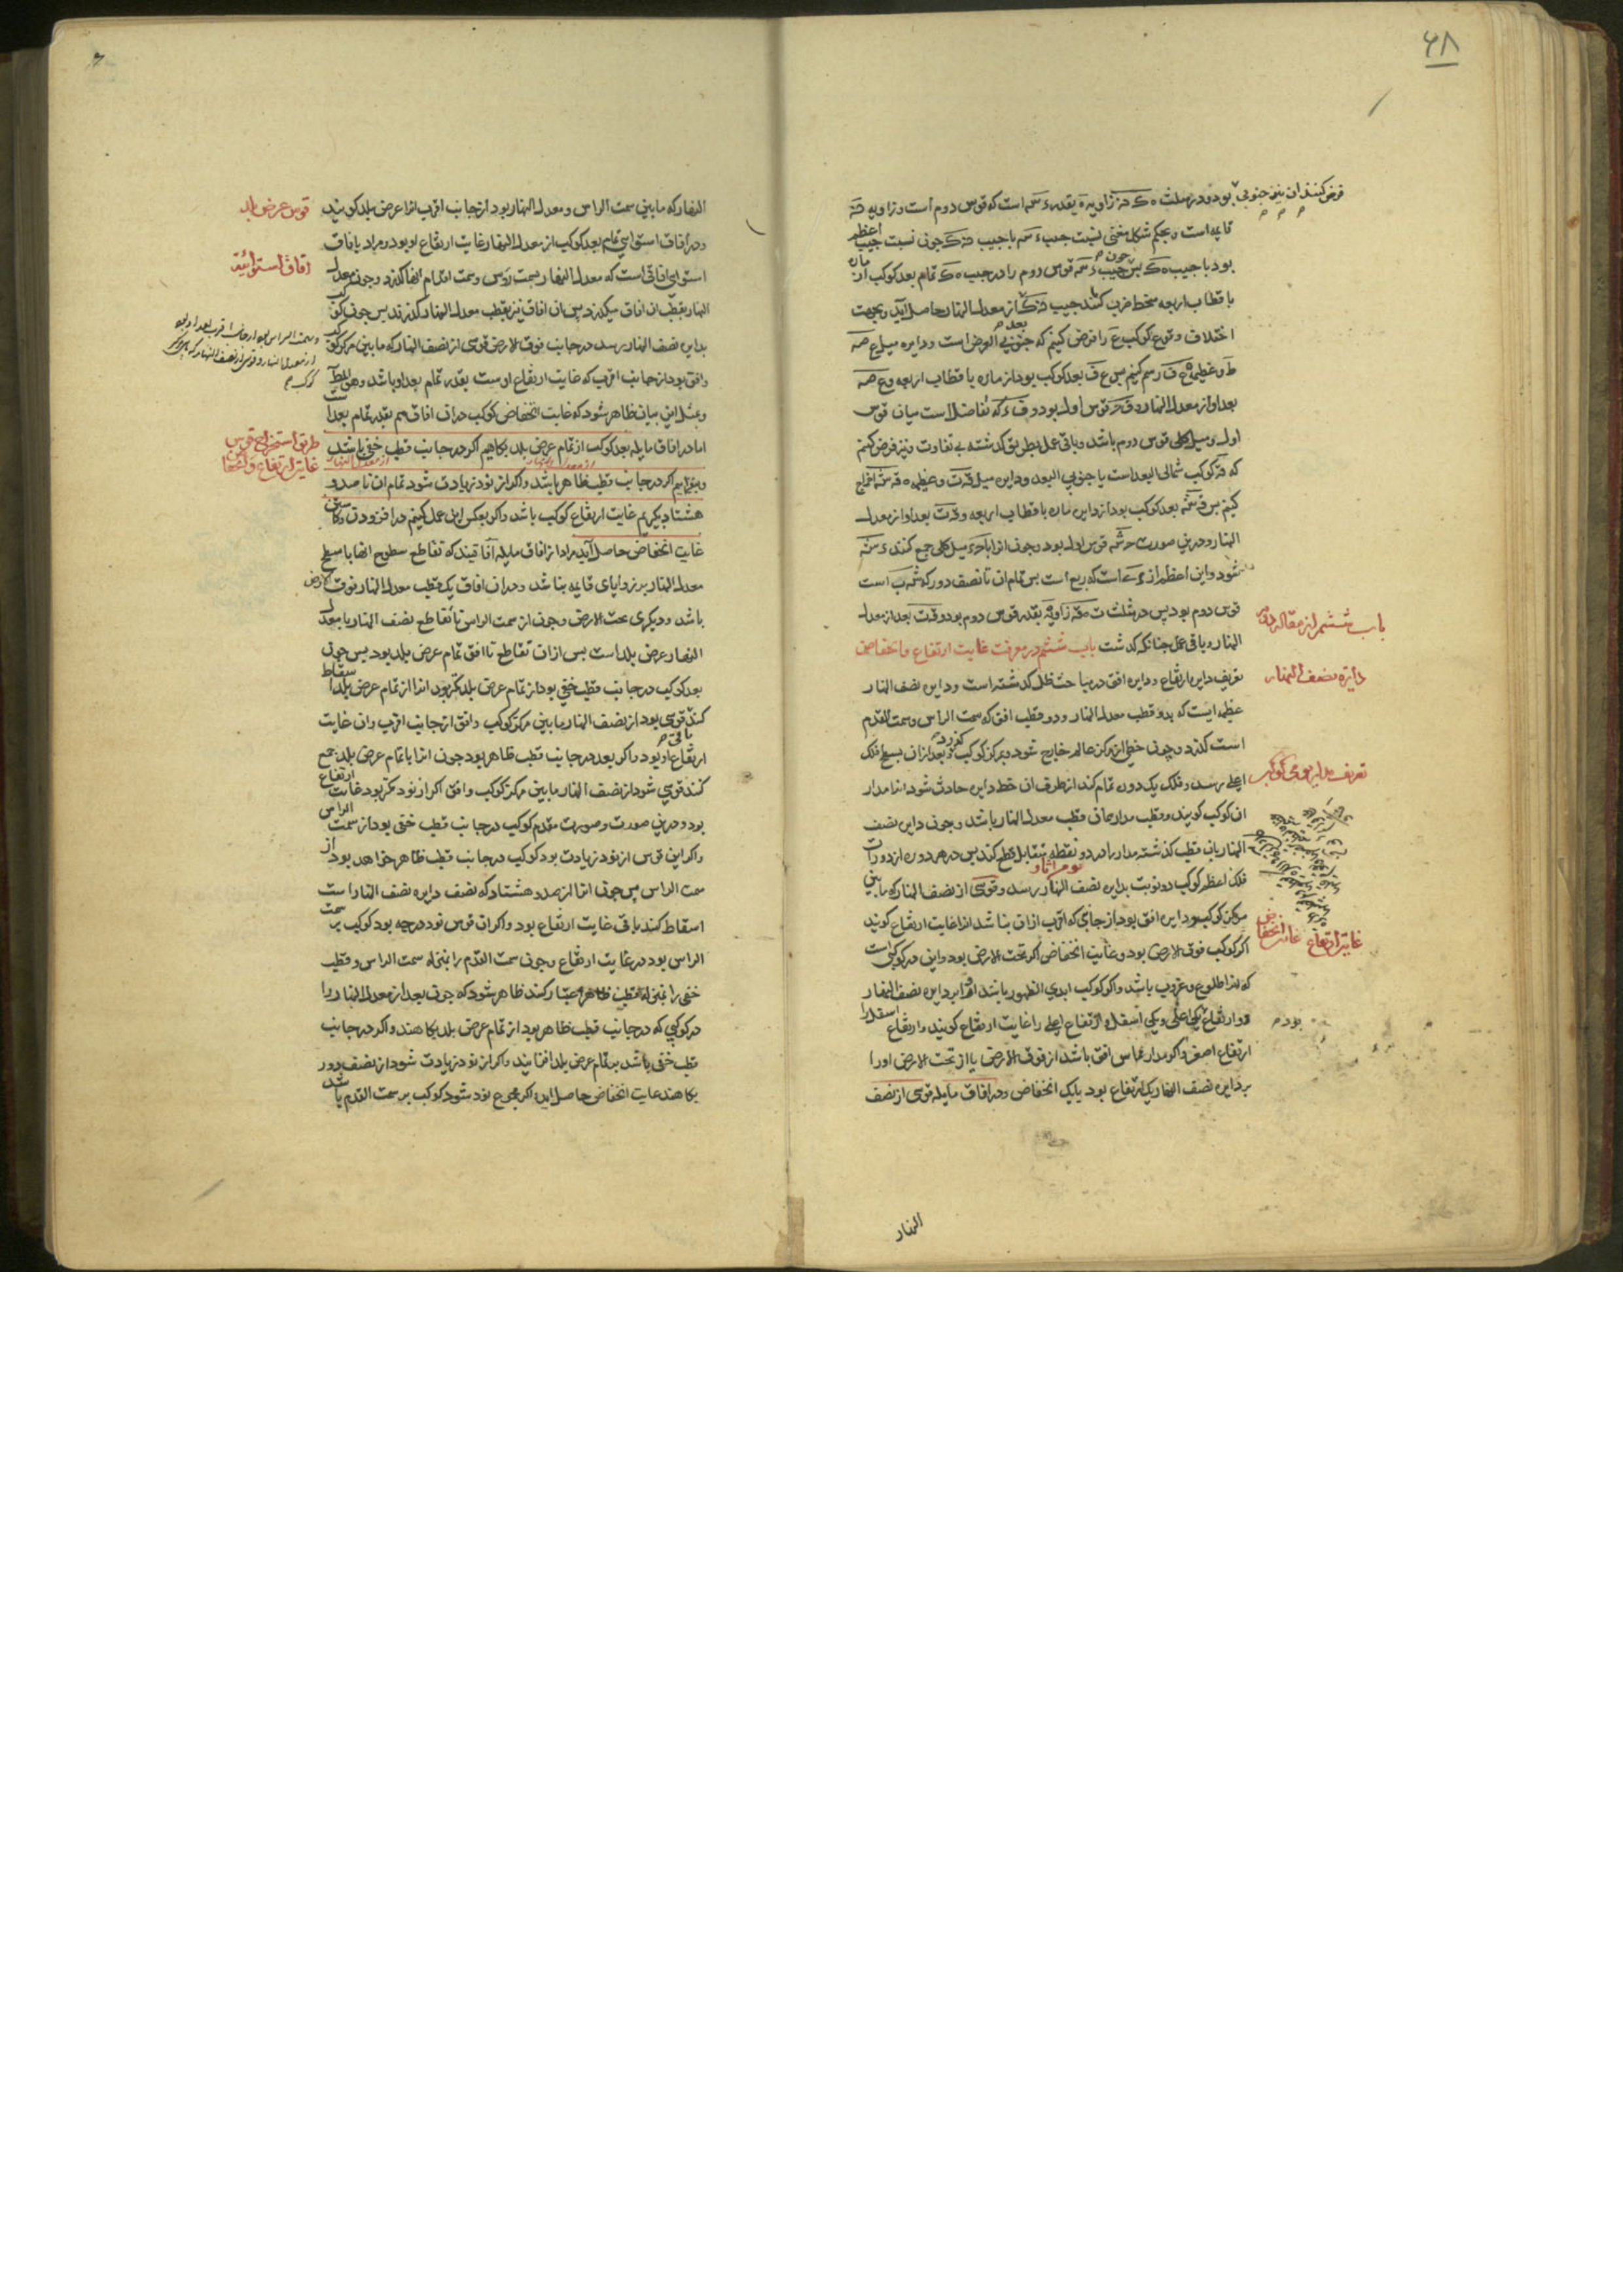 ۴۸
فرض کنند ان نیز جنوبی بود و در مثلث ه ک حه زاویه ه بقدر ء سه است که قوس دوم است و زاویه حه
قایمه است و بحکم شکل مغنی نسبت جیب ء سه با جیب حه ک چون نسبت جیب اعظم
بود با جیب ه ک پس چون جیب ء سه قوس دوم را در جیب ه ک تمام بعد کوکب از ماره
باقطاب اربعه منحط ضرب کنند جیب حه ک از معدل النهار حاصل آید و بجهت
اختلاف وقوع کوکب ع را فرض کنیم که جنوبی العرض است و دایره میل ع صه
ط و عظیمه ه ف رسم کنیم پس ع ف بعد کوکب بود از ماره باقطاب اربعه و ع صه
بعد او از معدل النهار و ف ح قوس اول بود و ف ء که تفاضل است میان قوس
اول و میل کلی قوس دوم باشد و باقی عمل بطریق گذشته بی تفاوت و نیز فرض کنیم
که ق کوکب شمالی البعد است یا جنوبی البعد و دایره میل ق ت و عظیمه ه ق شه اخراج
کنیم پس ق شه بعد کوکب بود از دایره ماره باقطاب اربعه و ق ت بعد او از معدل
النهار و درین صورت ح شه قوس اول بود و چون انرا با ح ء میل کلی جمع کنند ء شه
شود و این اعظم از ء است که ربع است پس تمام ان تا نصف دور که شه ب است
قوس دوم بود پس در مثلث ت ه ق زاویه ه بقدر قوس دوم بود و ق ت بعد از معدل
النهار و باقی عمل چنانکه گذشت باب ششم در معرفت غایت ارتفاع و انخفاض
تعریف دایره ارتفاع و دایره افق در مباحث ظل گذشته است و دایره نصف النهار
عظیمه ایست که بدو قطب معدل النهار و دو قطب افق که سمت الراس و سمت القدم
است گذرد و چون خطی از مرکز عالم خارج شود و بمرکز کوکب گذرد و بعد از ان بسطح فلک
اعلی رسد و فلک یک دوره تمام کند از طرف ان خط دایره حادث شود انرا مدار
ان کوکب گویند و قطب مدار همان قطب معدل النهار باشد و چون دایره نصف
النهار بان قطب گذشته مدار را در دو نقطه متقابل قطع کند پس در هر دوره از دورات
فلک اعظم کوکب دو نوبت بدایره نصف النهار رسد و قوسی از نصف النهار که مابین
مرکز کوکب و دایره افق بود از جانبی که اقرب از ان نباشد انرا غایت ارتفاع گویند
اگر کوکب فوق الارض بود و غایت انخفاض اگر تحت الارض بود و این در کوکبی است
که انرا طلوع و غروب باشد و اگر کوکب ابدی الظهور باشد او را بر دایره نصف النهار
دو ارتفاع بود یکی اعلی و یکی اسفل و ارتفاع اعلی را غایت ارتفاع گویند و ارتفاع اسفل را
ارتفاع اصغر و اگر مدار مماس افق باشد از فوق الارض یا از تحت الارض او را
بر دایره نصف النهار یک ارتفاع بود یا یک انخفاض و در افاق مایله قوسی از نصف
النهار
باب ششم از مقاله دوم
دایره نصف النهار
تعریف مدار یومی کوکب
غایة ارتفاع غایة انخفاض
النهار که مابین سمت الراس و معدل النهار بود از جانب اقرب انرا عرض بلد گویند
و در آفاق استوایی تمام بعد کوکب از معدل النهار غایت ارتفاع او بود و مراد بافاق
استوایی افاقی است که معدل النهار بسمت رؤس و سمت اقدام انها گذرد و چون معدل
النهار بقطب ان افاق میگذرد پس ان افاق نیز بقطب معدل النهار گذرند پس چون کوکب
بدایره نصف النهار رسد در جانب فوق الارض قوسی از نصف النهار که مابین مرکز کوکب
وافق بود از جانب اقرب که غایت ارتفاع اوست بقدر تمام بعد او باشد و هو المطلوب
و بمثل این بیان ظاهر شود که غایت انخفاض کوکب در ان افاق هم بقدر تمام بعد است
اما در افاق مایله بعد کوکب از معدل النهار از تمام عرض بلد بکاهیم اگر در جانب قطب خفی باشد
و بیفزاییم اگر در جانب قطب ظاهر باشد و اگر از نود زیادت شود تمام ان تا صد و
هشتاد بگیریم غایت ارتفاع کوکب باشد و اگر بعکس این عمل کنیم در افزودن و کاستن
غایت انخفاض حاصل آید مراد از افاق مایله آفاقیند که تقاطع سطوح انها با سطح
معدل النهار بر زوایای قایمه نباشد و در ان افاق یک قطب معدل النهار فوق الارض
باشد و دیگری تحت الارض و چون از سمت الراس تا تقاطع نصف النهار با معدل
النهار عرض بلد است پس از ان تقاطع تا افق تمام عرض بلد بود پس چون
بعد کوکب در جانب قطب خفی بود از تمام عرض بلد کمتر بود انرا از تمام عرض بلد اسقاط
کنند قوسی بود از نصف النهار مابین مرکز کوکب وافق از جانب اقرب و ان غایت
ارتفاع او بود و اگر بعد در جانب قطب ظاهر بود چون انرا با تمام عرض بلد جمع
کنند قوسی شود از نصف النهار مابین مرکز کوکب وافق اگر از نود کمتر بود غایت ارتفاع
بود و درین صورت و صورت مقدم کوکب در جانب قطب خفی بود از سمت الراس
و اگر این قوس از نود زیادت بود کوکب در جانب قطب ظاهر خواهد بود از
سمت الراس پس چون انرا از صد و هشتاد که نصف دایره نصف النهار است
اسقاط کنند باقی غایت ارتفاع بود و اگر ان قوس نود درجه بود کوکب بر سمت
الراس بود در غایت ارتفاع و چون سمت القدم را بمنزله سمت الراس و قطب
خفی را بمنزله قطب ظاهر اعتبار کنند ظاهر شود که چون بعد از معدل النهار را
در کوکبی که در جانب قطب ظاهر بود از تمام عرض بلد بکاهند و اگر در جانب
قطب خفی باشد بر تمام عرض بلد افزایند و اگر از نود زیادت شود از نصف دور
بکاهند غایت انخفاض حاصل اید و اگر مجموع نود شود کوکب بر سمت القدم باشد
قوس عرض بلد
آفاق استوائیة
طریق استخراج قوس
غایة ارتفاع و انخفاض